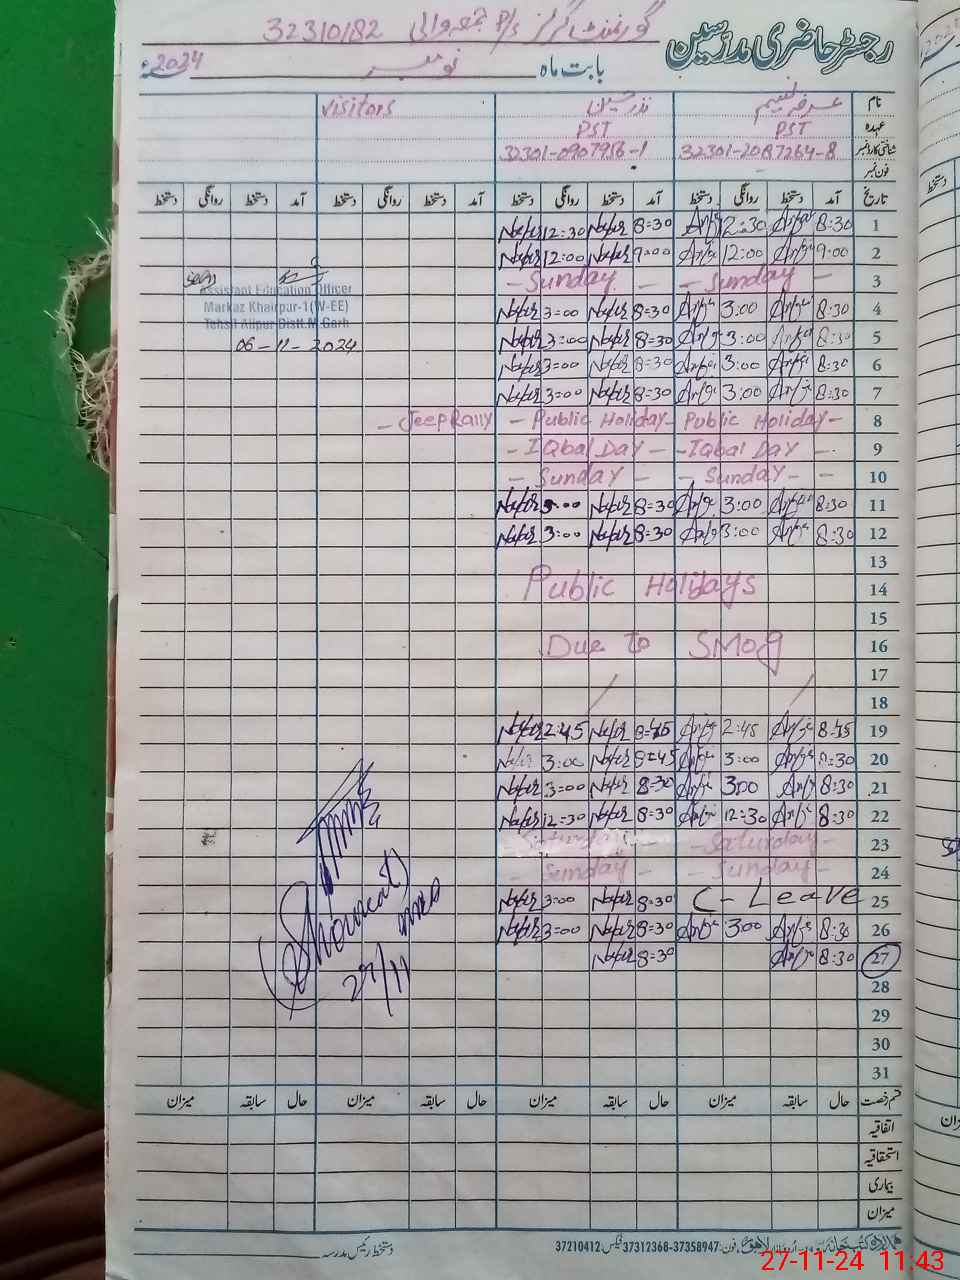 رجسٹر حاضری مدرسین گورنمنٹ گرلز P/s جمعہ والی 32310182
بابت ماہ نومبر 2024ء
نام عرفہ نسیم نذر حسین visitors
عہدہ PST PST
شناختی کارڈ نمبر 32301-2087264-8 32301-0907956-1
فون نمبر
تاریخ آمد دستخط روانگی دستخط آمد دستخط روانگی دستخط آمد دستخط روانگی دستخط آمد دستخط روانگی دستخط
1 8:30 12:30 8=30 12=30
2 9:00 12:00 9=00 12=00
3 - Sunday - - Sunday -
Assistant Education Officer
Markaz Khairpur-1(W-EE)
Tehsil Alipur Distt.M.Garh
06-11-2024
4 8:30 3:00 8=30 3=00
5 8:30 3:00 8=30 3=00
6 8:30 3:00 8=30 3=00
7 8:30 3:00 8=30 3=00
8 - Public Holiday - - Public Holiday - Jeep Rally -
9 - IQbal DAY - - IQbal DAY -
10 - Sunday - - Sunday -
11 8:30 3:00 8=30 3=00
12 8:30 3:00 8=30 3=00
13
14 Public Holidays
15
16 Due to SMog
17
18
19 8:45 2:45 8=45 2:45
20 8:30 3:00 8=45 3=00
21 8:30 3:00 8=30 3=00
22 8:30 12:30 8=30 12=30
23 - Saturday - Saturday -
24 - Sunday - - Sunday -
25 C- Leave 8=30 3=00
26 8:30 3:00 8=30 3=00
27 8:30 8=30
Showcat
27/11
28
29
30
31
قسم رخصت حال سابقہ میزان حال سابقہ میزان حال سابقہ میزان حال سابقہ میزان
اتفاقیہ
استحقاقیہ
بیماری
میزان
لاہور فون: 37358947-37312368 فیکس: 37210412
دستخط رئیس مدرسہ
27-11-24 11:43